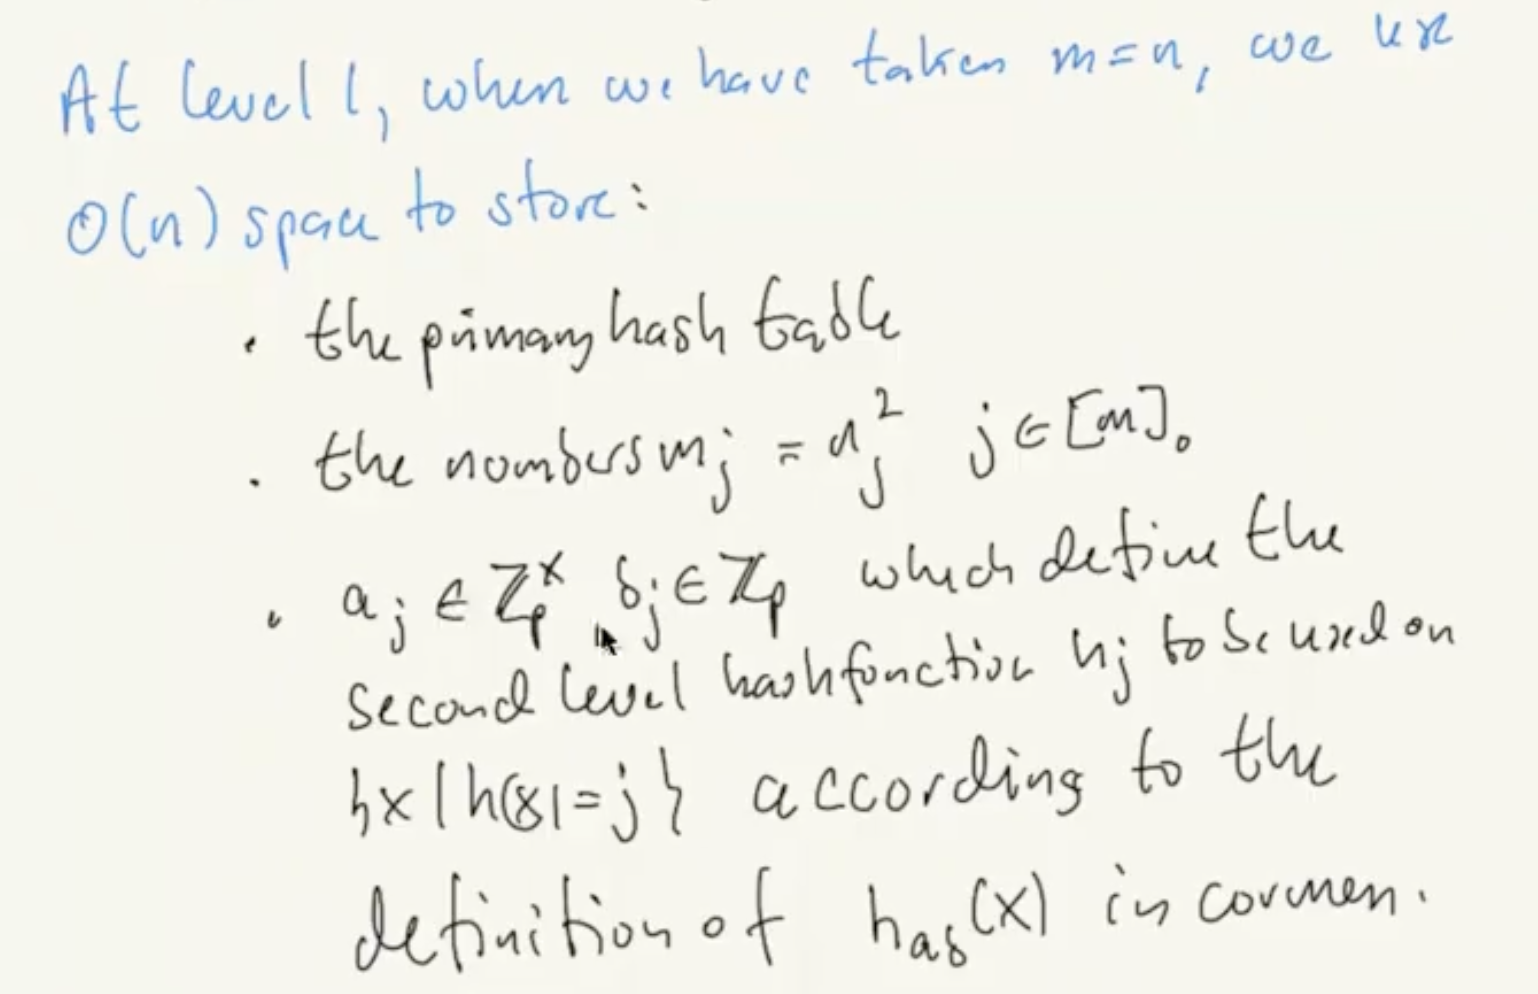 At level 1, when we have taken m=n, we use
O(n) space to store:
· the primary hash table
· the numbers m_j = n_j^2 j ∈ [m].
· a_j ∈ Z_p^x, b_j ∈ Z_p which define the
second level hashfunction h_j to be used on
{x | h(x) = j} according to the
definition of h_ab(x) in cormen.